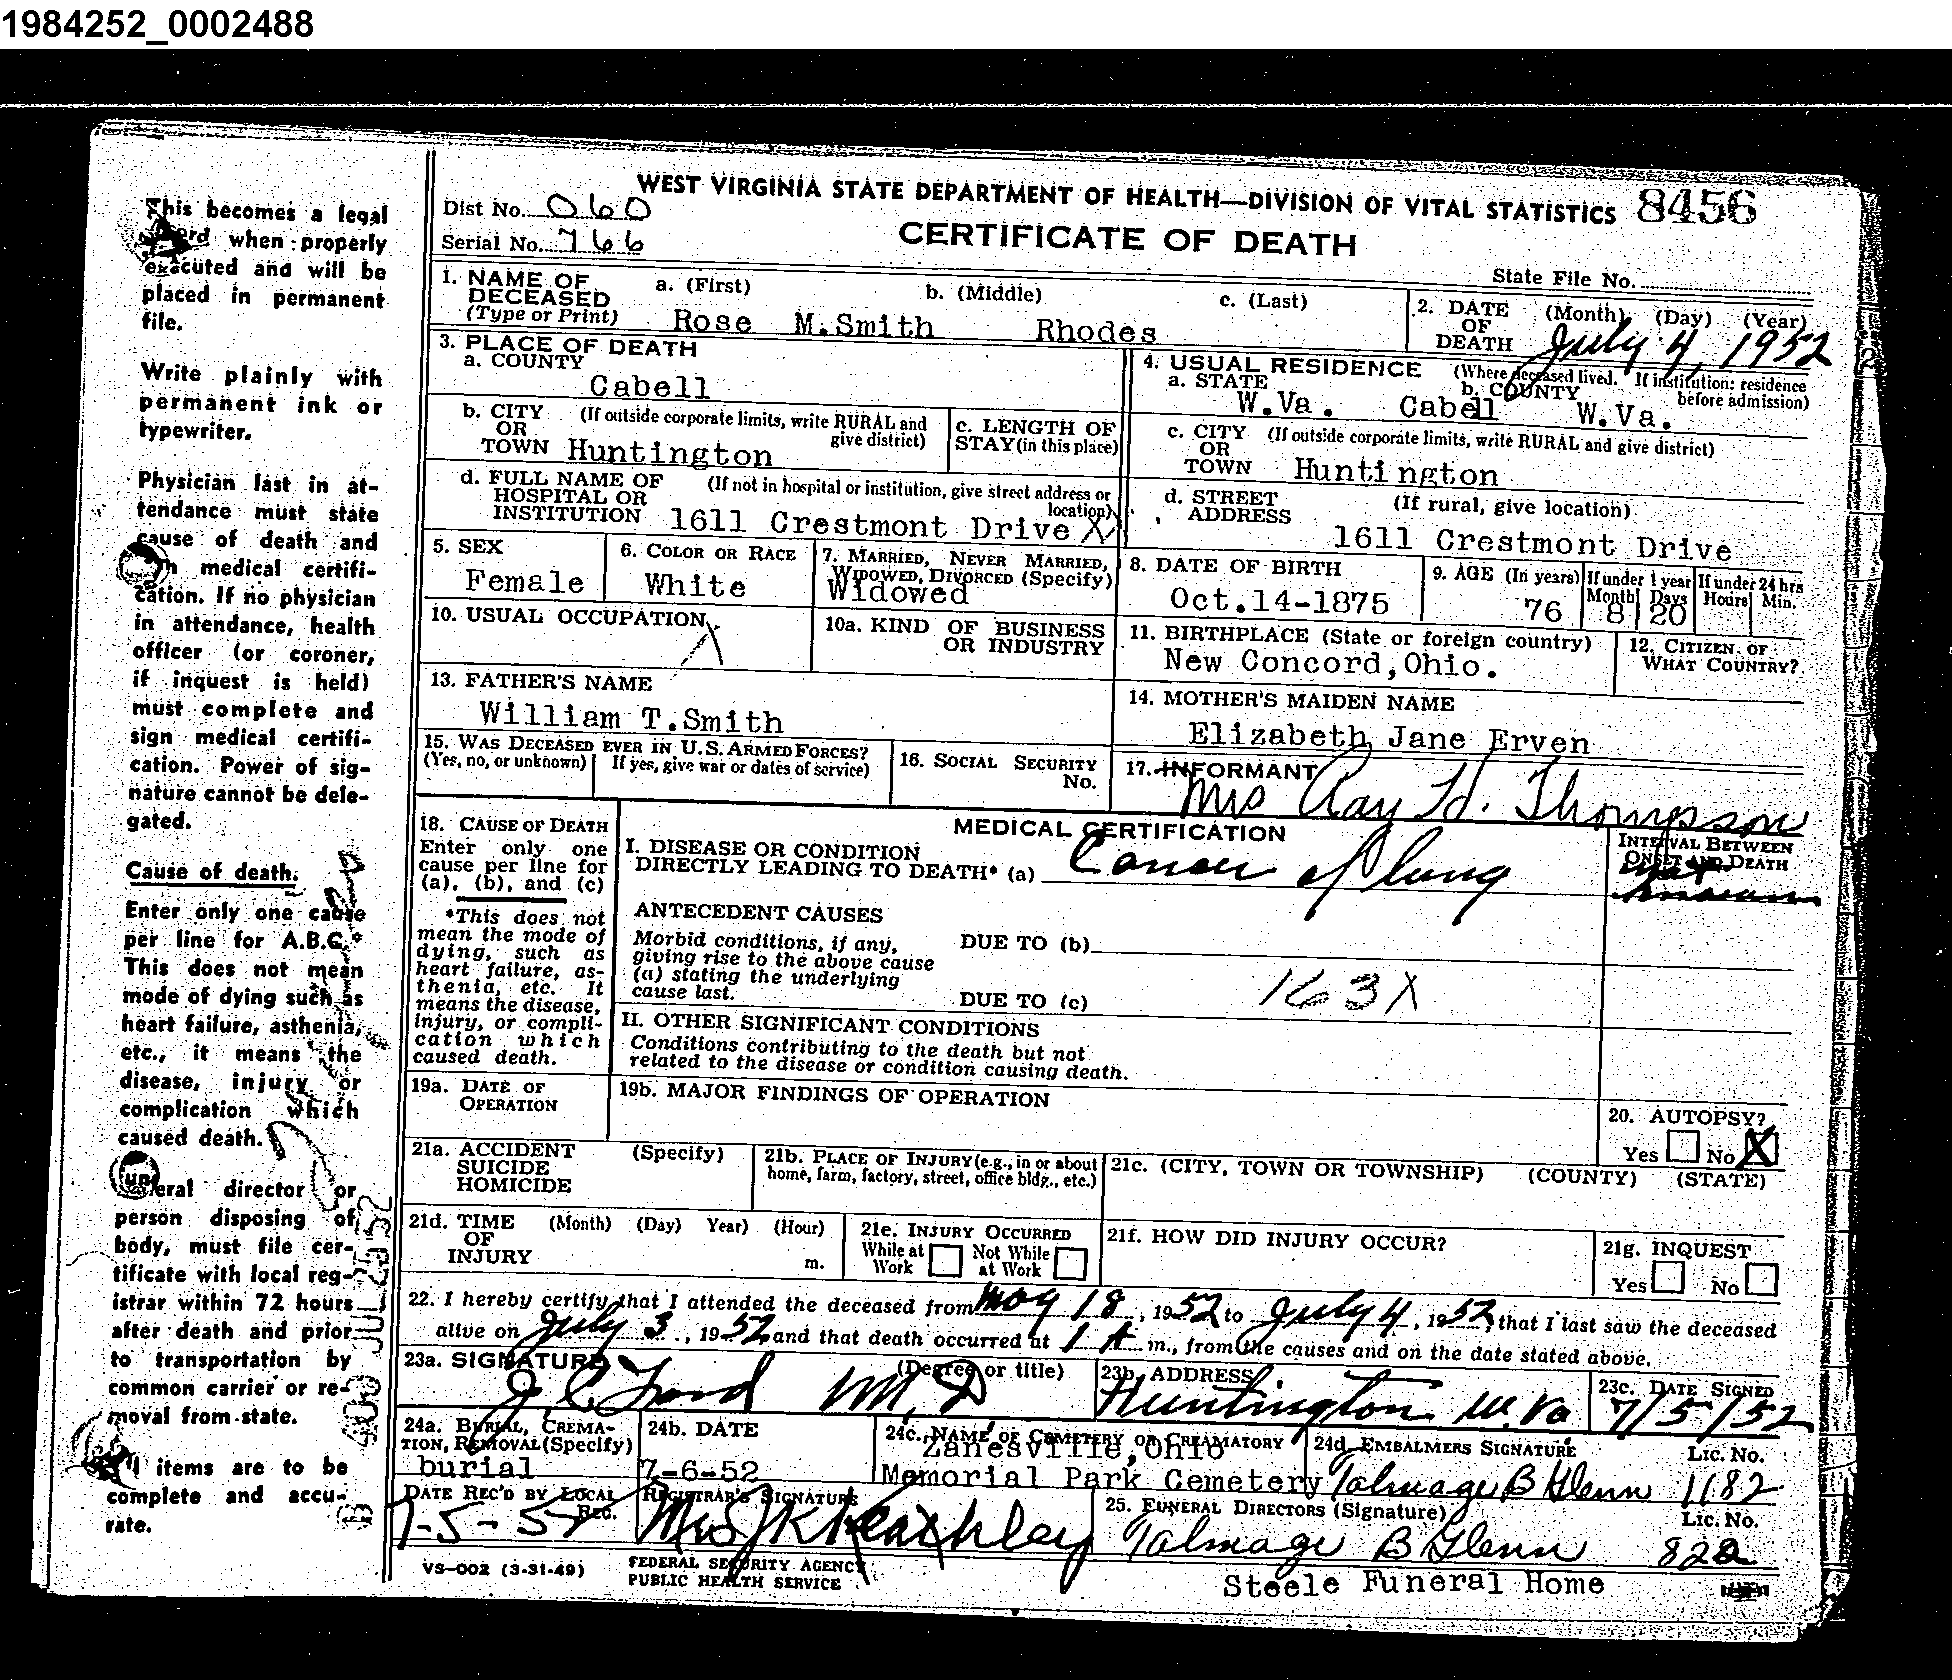 1984252_0002488
This becomes a legal
record when properly
executed and will be
placed in permanent
file.
Write plainly with
permanent ink or
typewriter.
Physician last in at-
tendance must state
cause of death and
medical certifi-
cation. If no physician
in attendance, health
officer (or coroner,
if inquest is held)
must complete and
sign medical certifi-
cation. Power of sig-
nature cannot be dele-
gated.
Cause of death.
Enter only one cause
per line for A.B.C.*
This does not mean
mode of dying such as
heart failure, asthenia,
etc., it means the
disease, injury or
complication which
caused death.
Funeral director or
person disposing of
body, must file cer-
tificate with local reg-
istrar within 72 hours
after death and prior
to transportation by
common carrier or re-
moval from state.
All items are to be
complete and accu-
rate.
WEST VIRGINIA STATE DEPARTMENT OF HEALTH—DIVISION OF VITAL STATISTICS 8456
Dist No. 060
Serial No. 766
CERTIFICATE OF DEATH
State File No.
1. NAME OF DECEASED (Type or Print) a. (First) b. (Middle) c. (Last)
Rose M.Smith Rhodes
2. DATE OF DEATH (Month) (Day) (Year)
July 4, 1952
3. PLACE OF DEATH
a. COUNTY
Cabell
4. USUAL RESIDENCE (Where deceased lived. If institution: residence before admission)
a. STATE b. COUNTY
W.Va. Cabell W.Va.
b. CITY OR TOWN (If outside corporate limits, write RURAL and give district)
Huntington
c. LENGTH OF STAY (in this place)
c. CITY OR TOWN (If outside corporate limits, write RURAL and give district)
Huntington
d. FULL NAME OF HOSPITAL OR INSTITUTION (If not in hospital or institution, give street address or location)
1611 Crestmont Drive X
d. STREET ADDRESS (If rural, give location)
1611 Crestmont Drive
5. SEX
Female
6. COLOR OR RACE
White
7. MARRIED, NEVER MARRIED, WIDOWED, DIVORCED (Specify)
Widowed
8. DATE OF BIRTH
Oct.14-1875
9. AGE (In years) If under 1 year If under 24 hrs
Month Days Hours Min.
76 8 20
10. USUAL OCCUPATION
X
10a. KIND OF BUSINESS OR INDUSTRY
11. BIRTHPLACE (State or foreign country)
New Concord,Ohio.
12. CITIZEN OF WHAT COUNTRY?
13. FATHER'S NAME
William T.Smith
14. MOTHER'S MAIDEN NAME
Elizabeth Jane Erven
15. WAS DECEASED EVER IN U.S. ARMED FORCES?
(Yes, no, or unknown) If yes, give war or dates of service)
16. SOCIAL SECURITY No.
17. INFORMANT
Mrs Ray H. Thompson
18. CAUSE OF DEATH
Enter only one
cause per line for
(a), (b), and (c)
*This does not
mean the mode of
dying, such as
heart failure, as-
thenia, etc. It
means the disease,
injury, or compli-
cation which
caused death.
MEDICAL CERTIFICATION
I. DISEASE OR CONDITION
DIRECTLY LEADING TO DEATH* (a) Cancer of lung
INTERVAL BETWEEN ONSET AND DEATH
ANTECEDENT CAUSES
Morbid conditions, if any, DUE TO (b)
giving rise to the above cause
(a) stating the underlying
cause last. DUE TO (c)
163X
II. OTHER SIGNIFICANT CONDITIONS
Conditions contributing to the death but not
related to the disease or condition causing death.
19a. DATE OF OPERATION
19b. MAJOR FINDINGS OF OPERATION
20. AUTOPSY?
Yes No X
21a. ACCIDENT SUICIDE HOMICIDE (Specify)
21b. PLACE OF INJURY (e.g., in or about home, farm, factory, street, office bldg., etc.)
21c. (CITY, TOWN OR TOWNSHIP) (COUNTY) (STATE)
21d. TIME OF INJURY (Month) (Day) Year) (Hour) m.
21e. INJURY OCCURRED
While at Work Not While at Work
21f. HOW DID INJURY OCCUR?
21g. INQUEST
Yes No
22. I hereby certify that I attended the deceased from May 18, 1952 to July 4, 1952, that I last saw the deceased
alive on July 3, 1952 and that death occurred at 1 A m., from the causes and on the date stated above.
23a. SIGNATURE (Degree or title)
J. C. Ford M.D
23b. ADDRESS
Huntington W. Va
23c. DATE SIGNED
7/5/52
24a. BURIAL, CREMATION, REMOVAL (Specify)
burial
24b. DATE
7-6-52
24c. NAME OF CEMETERY OR CREMATORY
Zanesville,Ohio
Memorial Park Cemetery
24d. EMBALMERS SIGNATURE Lic. No.
Talmage B Glenn 1182
DATE REC'D BY LOCAL REG.
7-5-52
REGISTRAR'S SIGNATURE
25. FUNERAL DIRECTORS (Signature) Lic. No.
Talmage B Glenn 822
Steele Funeral Home
VS-002 (3-31-49)
FEDERAL SECURITY AGENCY
PUBLIC HEALTH SERVICE